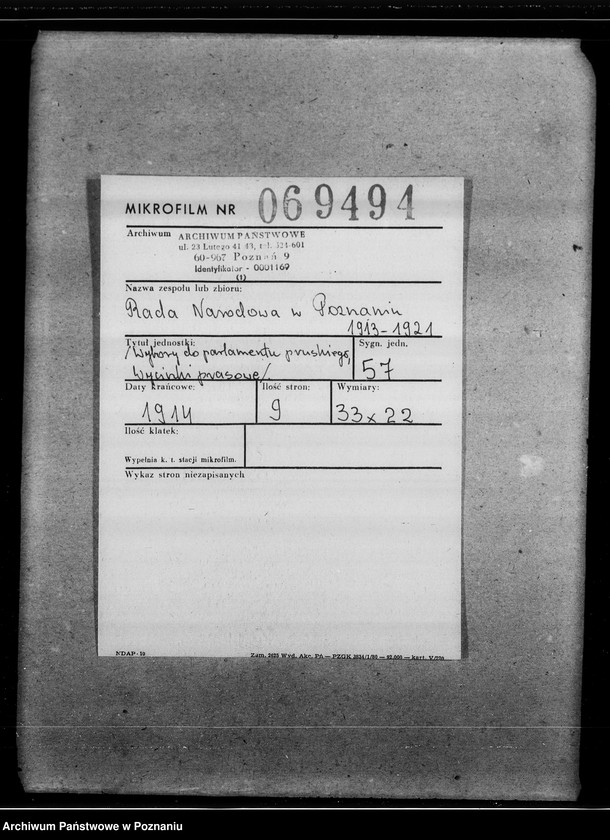 MIKROFILM NR 069494
Archiwum ARCHIWUM PAŃSTWOWE
ul. 23 Lutego 41 43, tel. 524-601
60-967 Poznań 9
Identyfikator - 0001169
(1)
Nazwa zespołu lub zbioru:
Rada Narodowa w Poznaniu
1913-1921
Tytuł jednostki:
/Wybory do parlamentu pruskiego,
Wycinki prasowe/.
Sygn. jedn.
57
Daty krańcowe:
1914
Ilość stron:
9
Wymiary:
33 x 22
Ilość klatek:
Wypełnia k. t. stacji mikrofilm.
Wykaz stron niezapisanych
NDAP-19
Zam. 2625 Wyd. Akc. Pń — PZGK
Archiwum Państwowe w Poznaniu